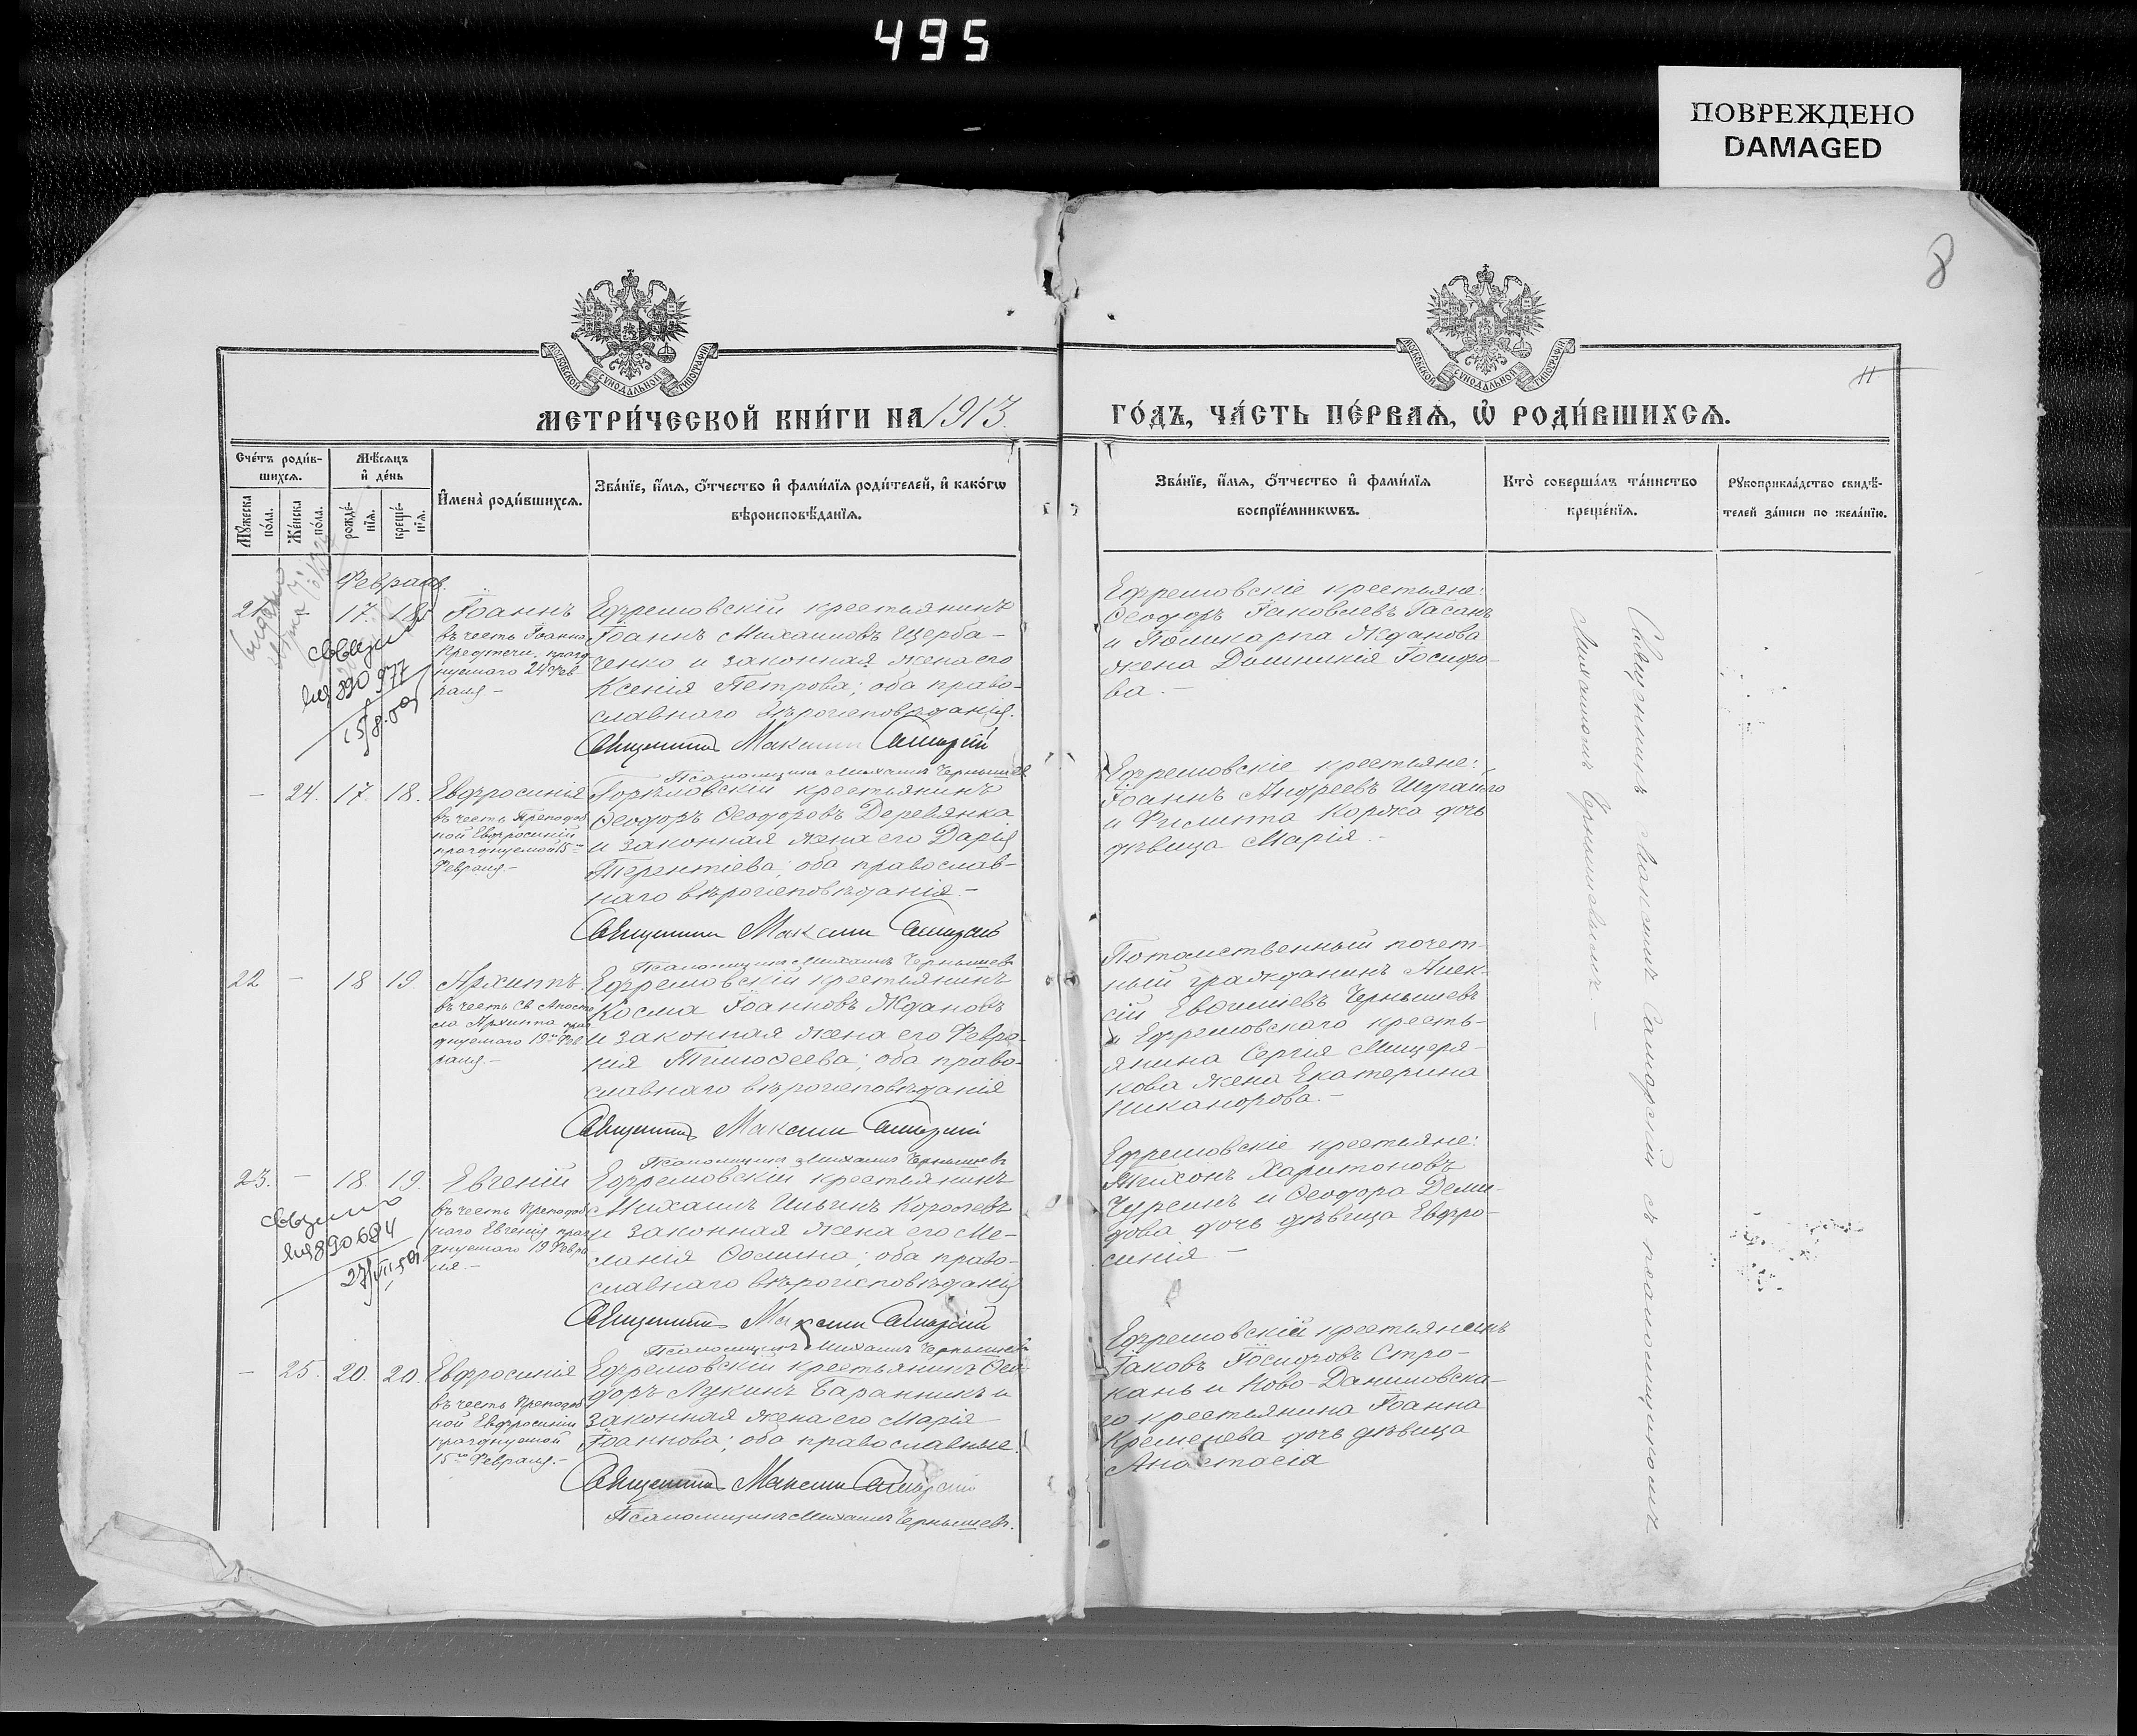 495
ПОВРЕЖДЕНО
DAMAGED
8
МОСКОВСКОЙ СѴНОДАЛЬНОЙ ТИПОГРАФІИ
МОСКОВСКОЙ СѴНОДАЛЬНОЙ ТИПОГРАФІИ
11
МЕТРИ́ЧЕСКОЙ КНИ́ГИ НА 1913.
ГО́ДЪ, ЧА́СТЬ ПЕ́РВАѦ, Ѡ҆ РОДИ́ВШИХСѦ.
Сче́тъ роди́в-
шихсѧ.
Мꙋ́жеска
по́ла.
Же́нска
по́ла.
Мѣ́сѧцъ
и҆ де́нь
рожде́-
нїѧ.
креще́-
нїѧ.
И҆мена̀ роди́вшихсѧ.
Зва́нїе, и҆́мѧ, ѻ҆́тчество и҆ фами́лїѧ роди́телей, и҆ како́гѡ
вѣроисповѣ́данїѧ.
Зва́нїе, и҆́мѧ, ѻ҆́тчество и҆ фами́лїѧ
воспрїе́мникѡвъ.
Кто̀ соверша́лъ та́инство
креще́нїѧ.
Рꙋкоприкла́дство свидѣ́-
телей за́писи по жела́нїю.
Февраль.
21 17. 18. Іоаннъ
въ честь Іоанна
Предтечи, празд
нуемаго 24 Фев-
раля.-
Ефремовскій крестьянинъ
Іоаннъ Михаиловъ Щерба-
ченко и законная жена его
Ксенія Петрова; оба право-
славнаго вѣроисповѣданія.
Священникъ Максимъ Самарскій
Псаломщикъ Михаилъ Чернышев
Ефремовскіе крестьяне:
Ѳеодоръ Іаковлевъ Гасанъ
и Поликарпа Жданова
жена Домникія Іосифо-
ва.-
890977
15/8.59
- 24. 17. 18. Евфросинія
въ честь Преподоб
ной Евфросиніи
празднуемой 15го
Февраля.-
Горѣловскій крестьянинъ
Ѳеодоръ Ѳеодоровъ Деревянка
и законная жена его Дарія
Терентіева; оба православ-
наго вѣроисповѣданія.-
Священникъ Максимъ Самарскій
Псаломщикъ Михаилъ Чернышев
Ефремовскіе крестьяне:
Іоаннъ Андреевъ
и Филиппа Коржа дочь
дѣвица Марія.-
22 - 18 19. Архиппъ.
въ честь Св. Апосто
ла Архиппа праз
днуемаго 19го Фев
раля.-
Ефремовскій крестьянинъ
Косма Іоанновъ Ждановъ
и законная жена его Февро-
нія Тимоѳеева; оба право-
славнаго вѣроисповѣданія
Священникъ Максимъ Самарскій
Псаломщикъ Михаилъ Чернышевъ
Потомственный почет-
ный гражданинъ Алек-
сій Евѳиміевъ Чернышевъ
и Ефремовскаго кресть-
янина Сергія Мищеря-
кова жена Екатерина
Никанорова.-
23. - 18. 19. Евгеній
въ честь Преподоб
наго Евгенія праз
днуемаго 19 Февра
ля.-
Ефремовскій крестьянинъ
Михаилъ Ильинъ Королевъ
и законная жена его Ме-
ланія Ѳомина; оба право-
славнаго вѣроисповѣданія
Священникъ Максимъ Самарскій
Псаломщикъ Михаилъ Чернышевъ
Ефремовскіе крестьяне:
Тихонъ Харитоновъ
Чурсинъ и Ѳеодора Деми-
дова дочь дѣвица Евфро-
синія.-
890694
27/VII 59
- 25. 20. 20. Евфросинія
въ честь Преподоб
ной Евфросиніи
празднуемой
15го Февраля.-
Ефремовскій крестьянинъ Ѳео-
доръ Лукинъ Баранникъ и
законная жена его Марія
Іоаннова; оба православные.
Священникъ Максимъ Самарскій
Псаломщикъ Михаилъ Чернышевъ.
Ефремовскій крестьянинъ
Іаковъ Іосифовъ Стро-
кань и Ново-Даниловска-
го крестьянина Іоанна
Кременева дочь дѣвица
Анастасія
Священникъ Максимъ Самарскій съ псаломщикомъ
Михаиломъ Чернышевымъ.-